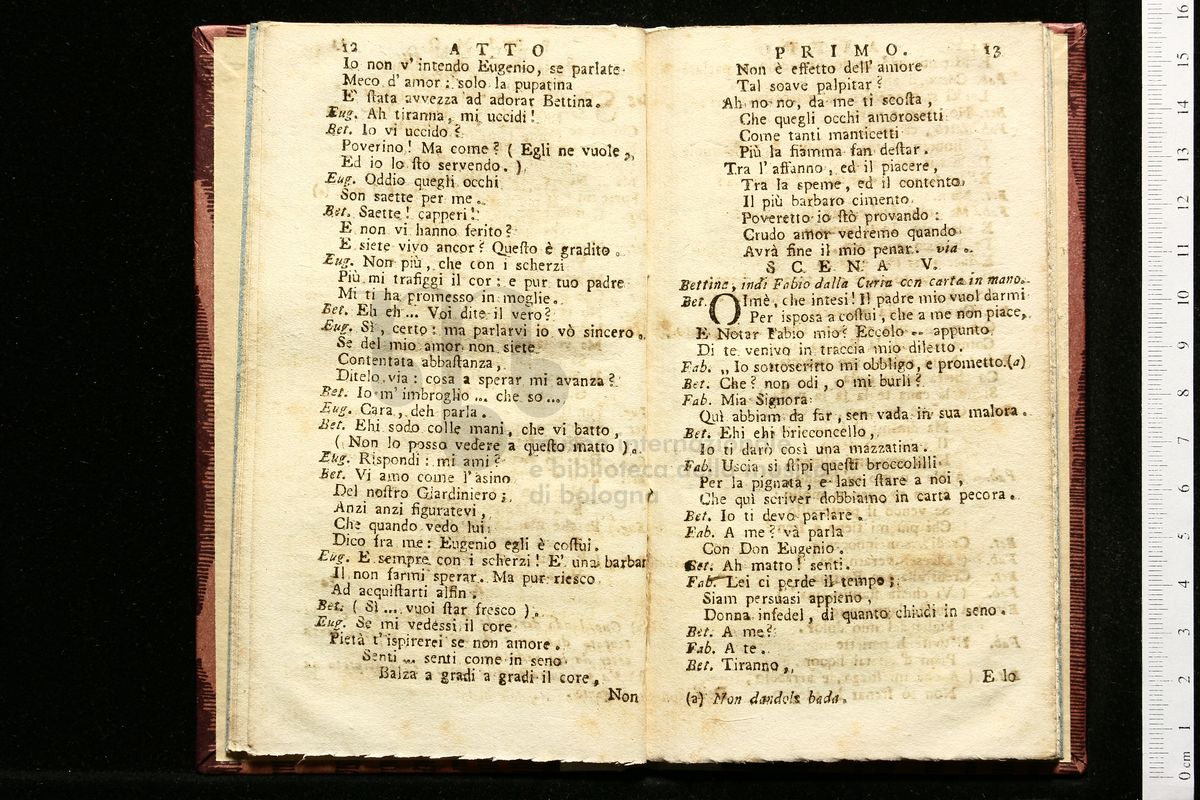 12 ATTO
Io non v' intendo Eugenio, se parlate
Meco d' amor: solo la pupatina
E' ſtata avvezza ad adorar Bettina.
Eug. Ah tiranna, mi uccidi!
Bet. Io vi uccido?
Poverino! Ma come? ( Egli ne vuole,
Ed io lo ſto servendo. )
Eug. Oddio quegli occhi
Son saette per me.
Bet. Saette! capperi!
E non vi hanno ferito?
E siete vivo ancor? Queſto è gradito.
Eug. Non più, che con i scherzi
Più mi trafiggi il cor: e pur tuo padre
Mi ti ha promesso in moglie.
Bet. Eh eh... Voi dite il vero?
Eug. Sì, certo: ma parlarvi io vò sincero.
Se del mio amor non siete
Contentata abbaſtanza,
Ditelo via: cosa a sperar mi avanza?
Bet. Io m' imbroglio ... che so...
Eug. Cara, deh parla.
Bet. Ehi sodo colle mani, che vi batto,
( Non lo posso vedere a queſto matto ).
Eug. Rispondi: mi ami?
Bet. Vi amo come l'asino
Del noſtro Giardiniero;
Anzi anzi figuratevi,
Che quando vedo lui,
Dico fra me: Eugenio egli è coſtui.
Eug. E sempre con i scherzi! E' una barbar
Il non farmi sperar. Ma pur riesco
Ad acquiſtarti alfin.
Bet. ( Sì ... vuoi ſtar fresco ).
Eug. Se mi vedessi il core
Pietà t' ispirerei se non amore.
Senti ... senti come in seno
Balza a gradi a gradi il core,
Non
PRIMO. 13
Non è effetto dell' amore
Tal soave palpitar?
Ah no no, da me ti scoſta,
Che quegli occhi amorosetti
Come tanti manticetti
Più la fiamma fan deſtar.
Tra l' affanno, ed il piacere,
Tra la speme, ed il contento,
Il più barbaro cimento
Poveretto io ſtò provando:
Crudo amor vedremo quando
Avrà fine il mio penar. via.
SCENA V.
Bettina, indi Fabio dalla Curia con carta in mano.
Bet. OImè, che intesi! Il padre mio vuol darmi
Per isposa a coſtui, che a me non piace,
E Notar Fabio mio? Eccolo .. appunto
Di te venivo in traccia mio diletto.
Fab. „ Io sottoscritto mi obbligo, e prometto.(a)
Bet. Che? non odi, o mi burli?
Fab. Mia Signora
Quì abbiam da far, sen vada in sua malora.
Bet. Ehi ehi bricconcello,
Io ti darò così una mazzatina.
Fab. Uscia si ſtipi queſti broccolilli
Per la pignata, e lasci ſtare a noi,
Che quì scriver dobbiamo in carta pecora.
Bet. Io ti devo parlare.
Fab. A me? và parla
Con Don Eugenio.
Bet. Ah matto! senti.
Fab. Lei ci perde il tempo;
Siam persuasi appieno,
Donna infedel, di quanto chiudi in seno.
Bet. A me?
Fab. A te.
Bet. Tiranno,
E lo
(a) Non dandole bada.
internazionale
e biblioteca della musica
di bologna